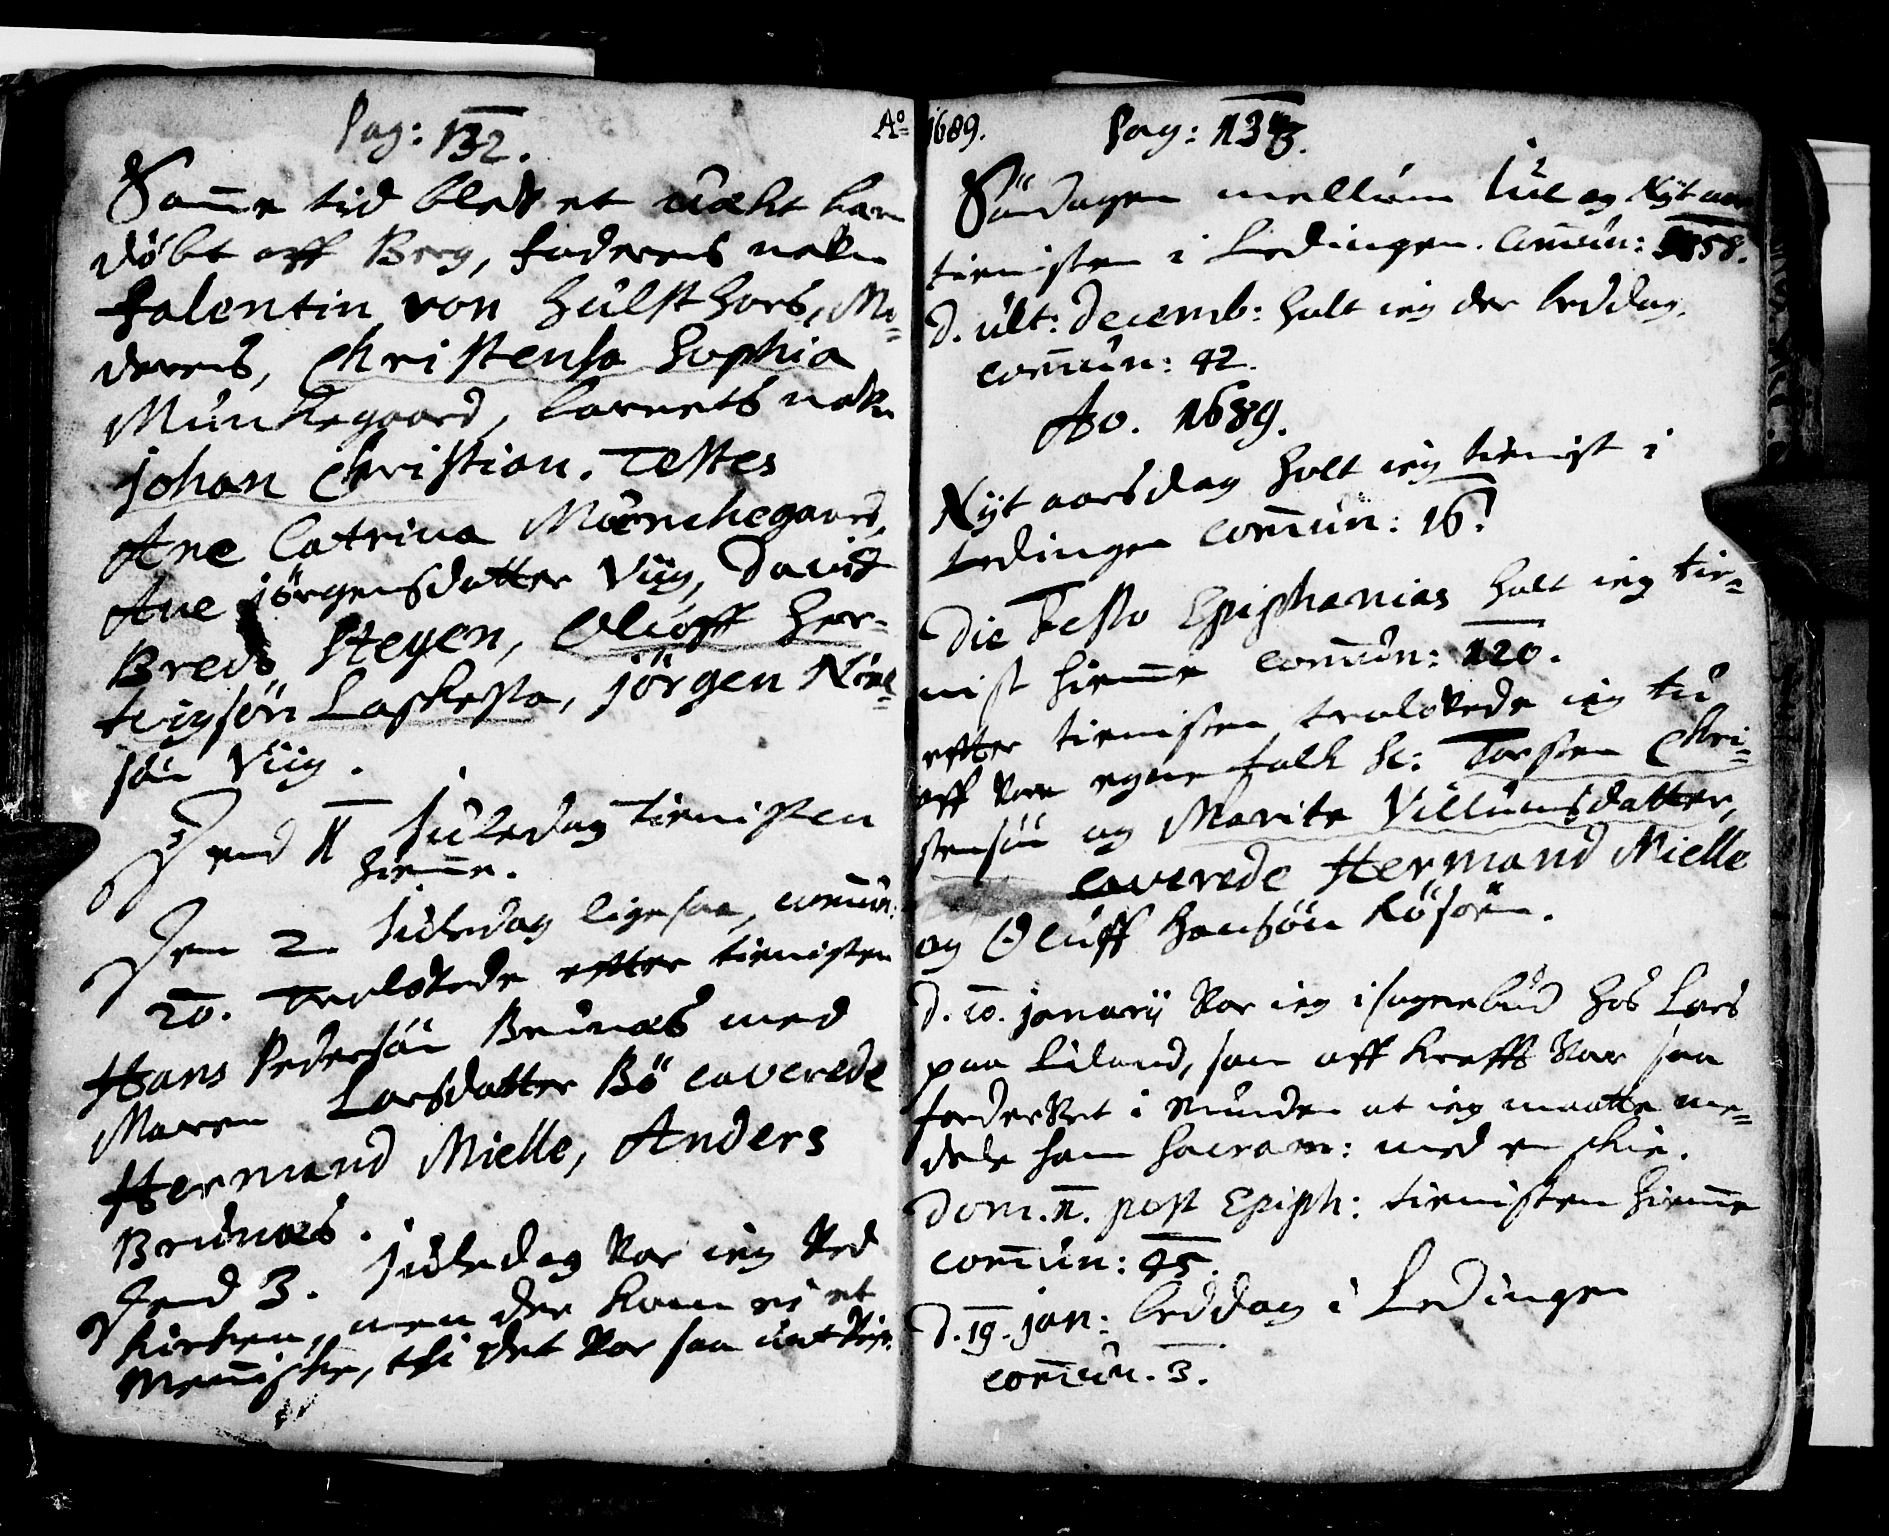 Pag: 132.
Samme tid bleff et uækt barn
döbt aff Berg, faderens nafn
falentin von Hülsthors, Mo=
derens, Christensa Sophia
Münkegaard, barnets nafn
Johan Christian. Testes
Ane Catrina Mönchegaard,
Ane Jörgensdatter Viig, David
Breds, Steyen, Oluff Her=
twigsön Laskesta, Jörgen
sön Viig.
Dend II Juledag tienisten
hiemme.
Den 2. Juledag ligesaa, commun:
20. Trolofvede efter tienisten
Hans Pedersön Brunæs med
Maren Larsdatter Bö caverede
Hermand Mielle, Anders
Brunæs.
Dend 3. Juledag var ieg ved
kirken, men der kom ei et
Menniske, thi det var saa
Ao 1689.
Pag: 133.
Söndagen mellum Iul og Nyt aar
tienisten i Lødingen. Commun: 58.
D. ult: decemb: holt ieg der beddag.
commun: 42.
Ao. 1689.
Nyt aarsdag holt ieg tienist i
Lødingen commun: 16.
Die Festo Epiphanias holt ieg tie=
nist hiemme commun: 120.
efter tienisten trolofvede ieg tu
aff vore egne folk sc: Torsten Chri=
stensön og Marite Villumsdatter,
caverede Hermand Mielle
og Oluff Hansön Kösöen.
d. 10. Janarij var ieg i sognebud hos Lars
paa Liland, som aff kreffts var saa
forderfvet i munden at ieg maatte me=
dele ham sacram: med en skie.
Dom. II. post Epiph: tienisten hiemme
commun: 45.
D. 19. jan: beddag i Lødingen
commun. 3.